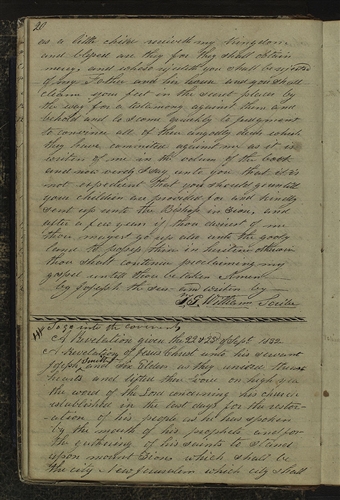 20
as a little child receiveth my kingdom
and blessed are they for they shall obtain
mercy, and whoso rejecteth you shall be rejected
of my Father and his house and you shall
cleanse your feet in the secret places by
the way for a testimony against them and
behold and lo I come quickly to judgment
to convince all of their ungodly deeds which
they have committed against me as it is
written of me in the volume of the book
and now verily I say unto you that it is
not expedient that you should go untill
your children are provided for and kindly
sent up unto the Bishop in Zion, and
after a few years if thou desirest of me
thou mayest go up also unto the goodly
land to possess thine inheritance
thou shalt continue proclaiming my
gospel untill thou be taken Amen
by Joseph the seer written by
William Scribe
A Revelation given the 22 & 23d of Sept. 1832
A Revelation of Jesus Christ unto his servant
Joseph Smith and six Elders as they united their
hearts and lifted their voice on high yea
the word of the Lord concerning his church
established in the last days for the restor-
ation of his people as he has spoken
by the mouth of his prophets and for
the gathering of his saints to stand
upon mount Zion which shall be
the city New Jerusalem which city shall